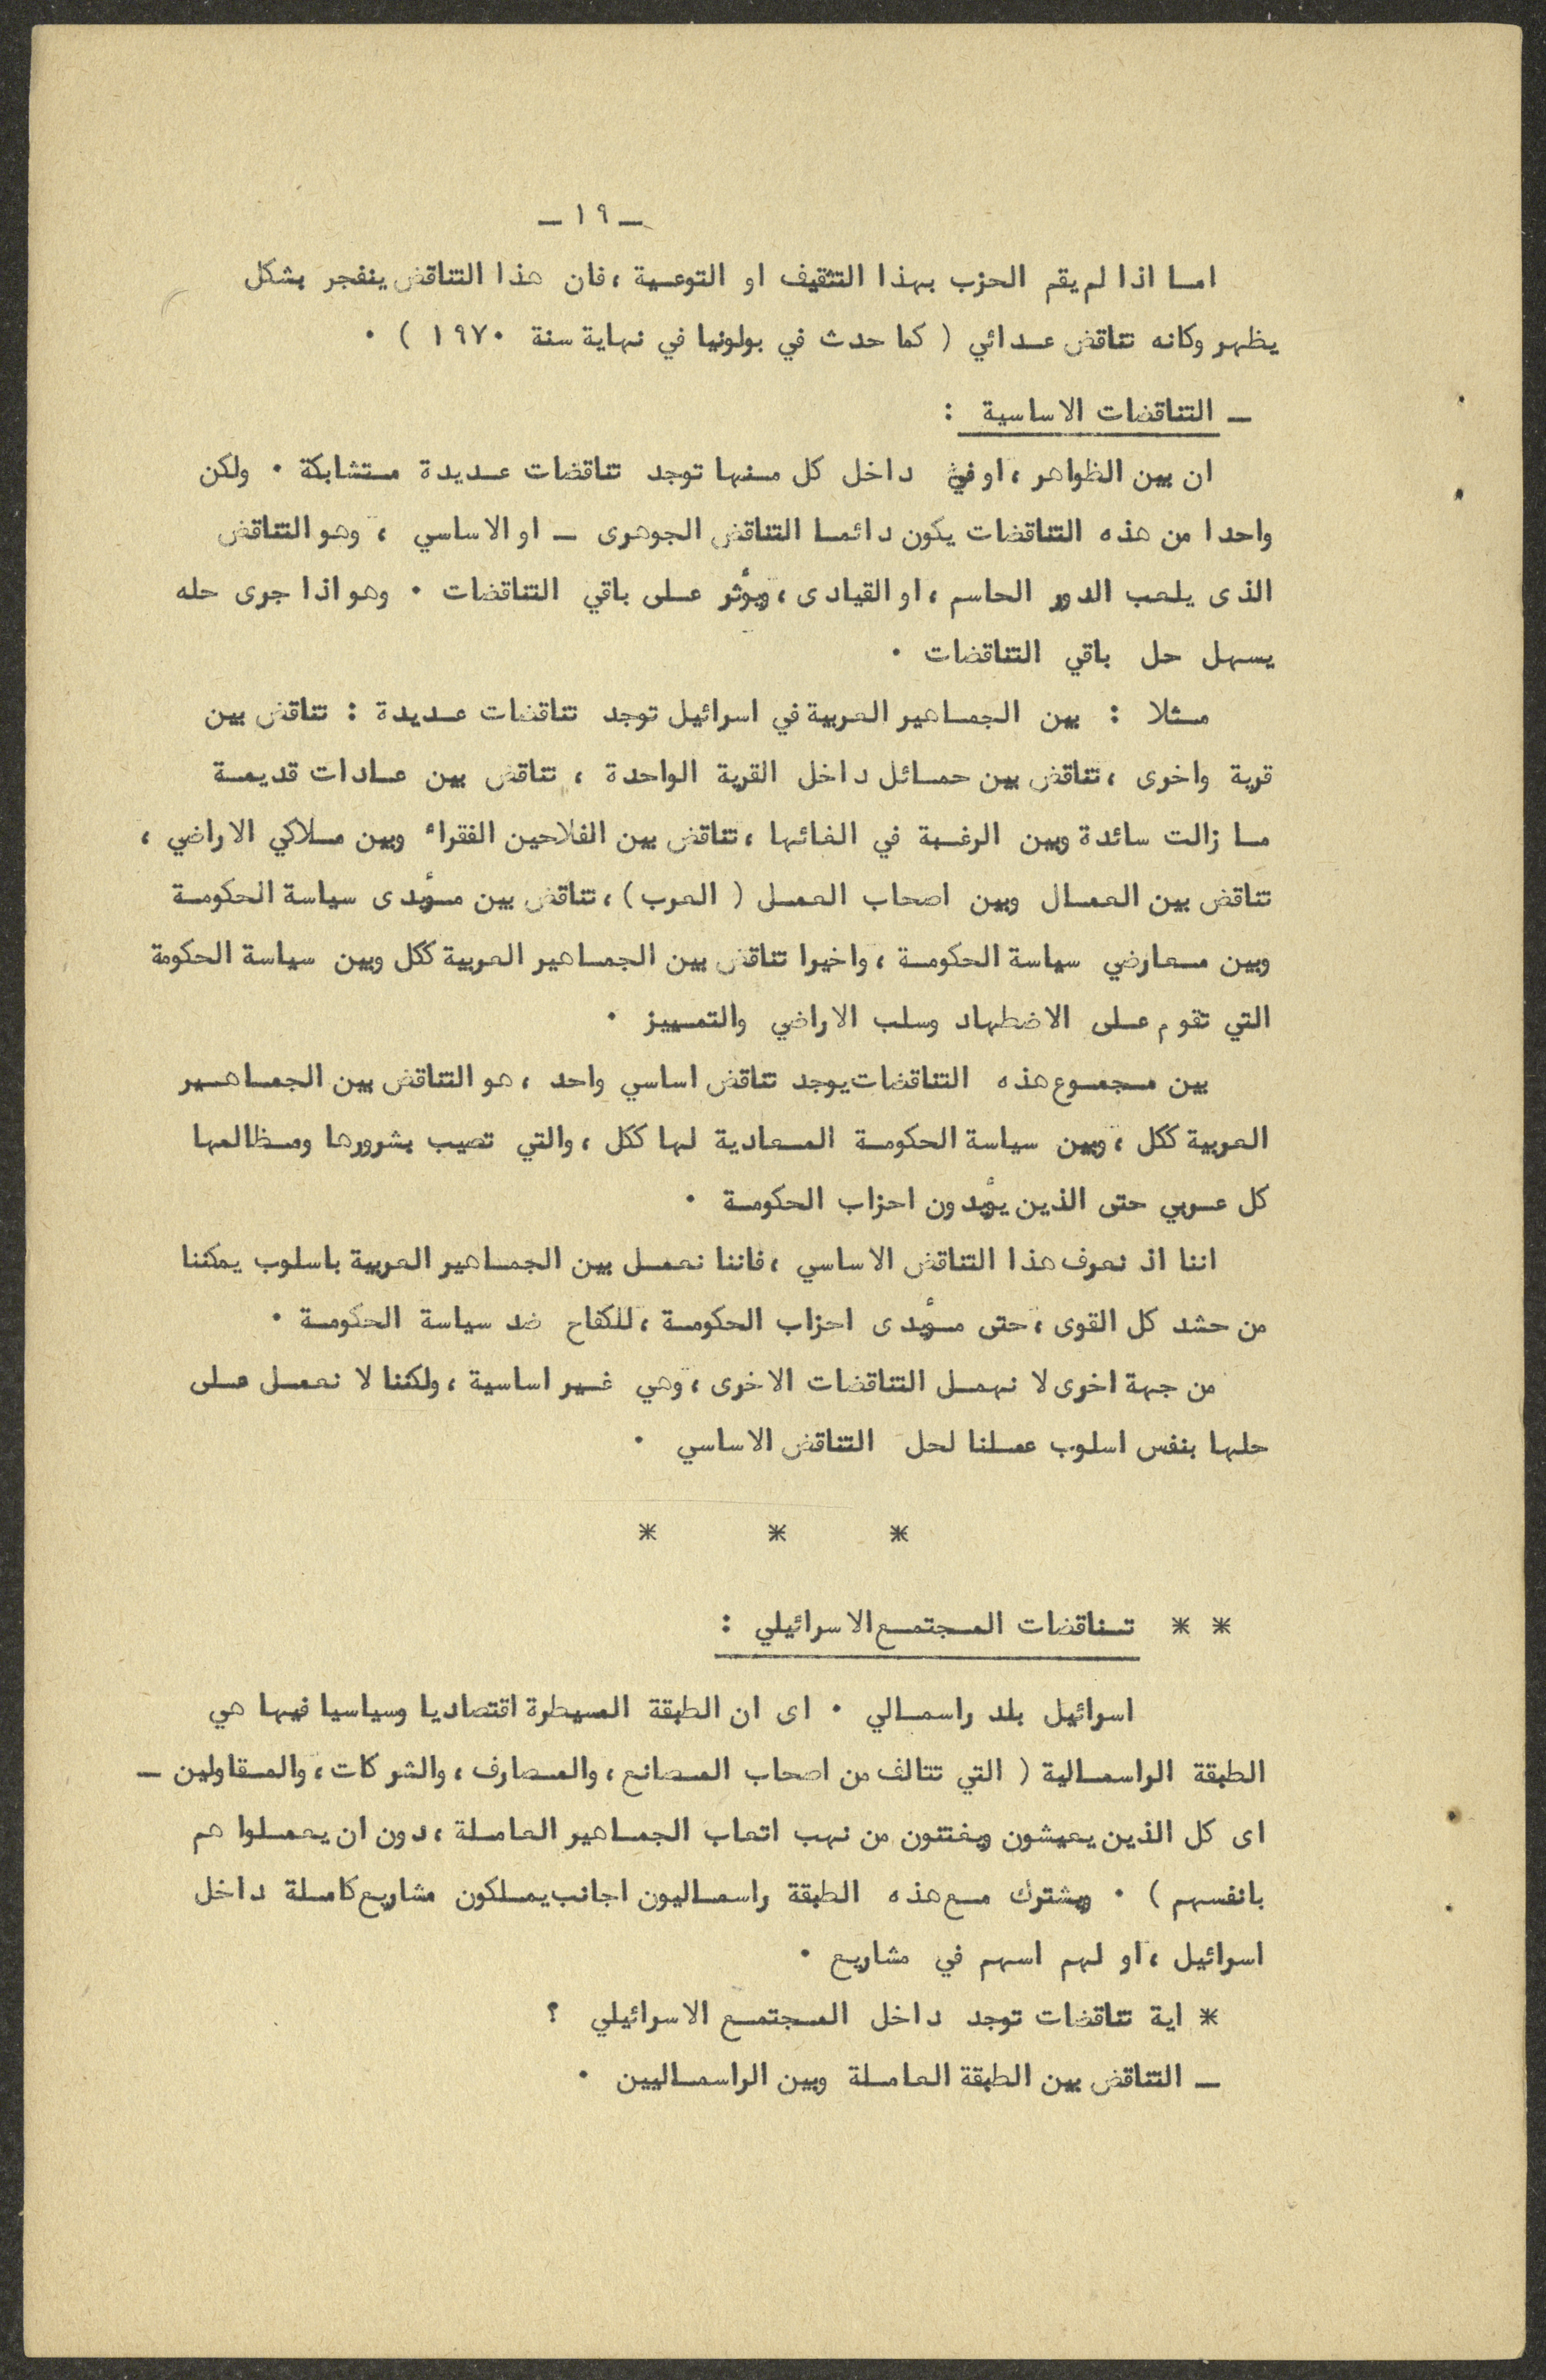 ـ ١٩ ـ
اما اذا لم يقم الحزب بهذا التثقيف او التوعية ، فان هذا التناقض ينفجر بشكل
يظهر وكانه تناقض عدائي ( كما حدث في بولونيا في نهاية سنة ١٩٧٠ ) ٠
ـ التناقضات الاساسية :
ان بين الظواهر ، او في داخل كل منها توجد تناقضات عديدة متشابكة ٠ ولكن
واحدا من هذه التناقضات يكون دائما التناقض الجوهرى ـ او الاساسي ، وهو التناقض
الذى يلعب الدور الحاسم ، او القيادى ، ويؤثر على باقي التناقضات ٠ وهو اذا جرى حله
يسهل حل باقي التناقضات ٠
مثلا : بين الجماهير العربية في اسرائيل توجد تناقضات عديدة : تناقض بين
قرية واخرى ، تناقض بين حمائل داخل القرية الواحدة ، تناقض بين عادات قديمة
ما زالت سائدة وبين الرغبة في الغائها ، تناقض بين الفلاحين الفقراء وبين ملاكي الاراضي ،
تناقض بين العمال وبين اصحاب العمل ( العرب ) ، تناقض بين مؤيدى سياسة الحكومة
وبين معارضي سياسة الحكومة ، واخيرا تناقض بين الجماهير العربية ككل وبين سياسة الحكومة
التي تقوم على الاضطهاد وسلب الاراضي والتمييز ٠
بين مجموع هذه التناقضات يوجد تناقض اساسي واحد ، هو التناقض بين الجماهير
العربية ككل ، وبين سياسة الحكومة المعادية لها ككل ، والتي تصيب بشرورها ومظالمها
كل عربي حتى الذين يؤيدون احزاب الحكومة ٠
اننا اذ نعرف هذا التناقض الاساسي ، فاننا نعمل بين الجماهير العربية باسلوب يمكننا
من حشد كل القوى ، حتى مؤيدى احزاب الحكومة ، للكفاح ضد سياسة الحكومة ٠
من جهة اخرى لا نهمل التناقضات الاخرى ، وهي غير اساسية ، ولكننا لا نعمل على
حلها بنفس اسلوب عملنا لحل التناقض الاساسي ٠
* * *
* * تناقضات المجتمع الاسرائيلي :
اسرائيل بلد راسمالي ٠ اى ان الطبقة المسيطرة اقتصاديا وسياسيا فيها هي
الطبقة الراسمالية ( التي تتالف من اصحاب المصانع ، والمصارف ، والشركات ، والمقاولين ـ
اى كل الذين يعيشون ويغتنون من نهب اتعاب الجماهير العاملة ، دون ان يعملوا هم
بانفسهم ) ٠ ويشترك مع هذه الطبقة راسماليون اجانب يملكون مشاريع كاملة داخل
اسرائيل ، او لهم اسهم في مشاريع ٠
* اية تناقضات توجد داخل المجتمع الاسرائيلي ؟
ـ التناقض بين الطبقة العاملة وبين الراسماليين ٠